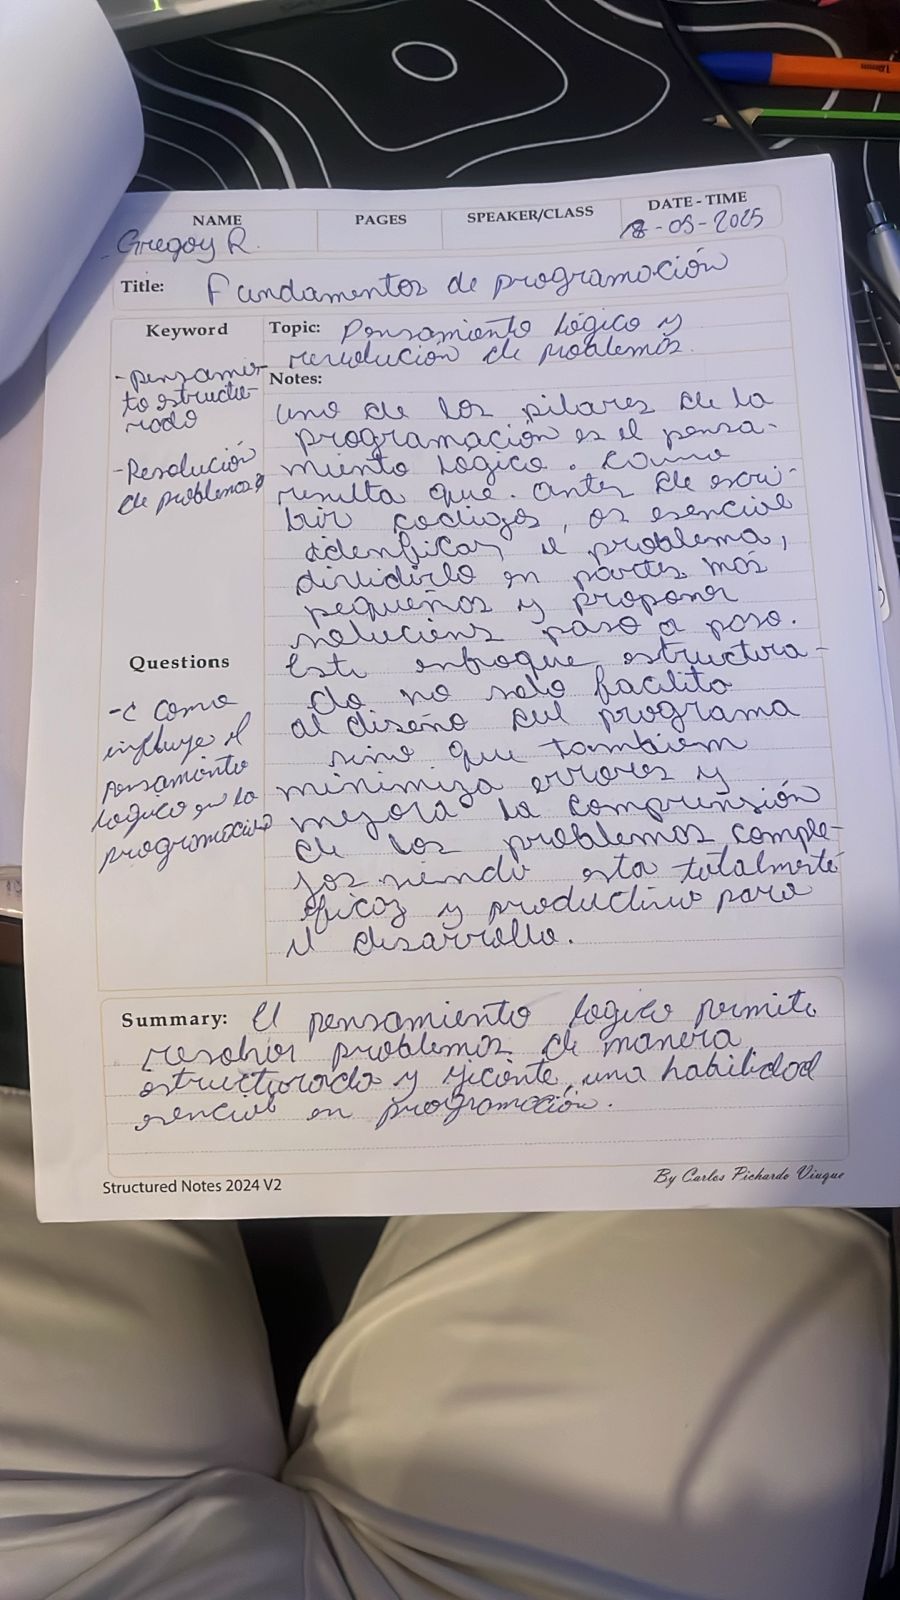 NAME
PAGES
SPEAKER/CLASS
DATE - TIME
Gregoy R.
18-05-2025
Title: Fundamentos de programación
Keyword
Topic: Pensamiento lógico y
resolución de problemas.
- pensamien-
to estructu-
rado
- Resolución
de problemas
Notes:
uno de los pilares de la
programación es el pensa-
miento lógico. Como
resulta que. antes de escri-
bir codigos, es esencial
idenficar el problema,
dividirlo en partes más
pequeños y proponer
soluciens paso a paso.
Este enfoque estructura-
do no solo facilita
al diseño del programa
sino que tambiem
minimiza errores y
mejora la comprensión
de los problemas comple-
jos siendo esta totalmente
eficaz y productivo para
el desarrollo.
Questions
-¿ Como
influye el
pensamiento
logico en la
programación
Summary: El pensamiento logico permite
resolver problemas de manera
estructurada y eficiente, una habilidad
esencial en programación.
Structured Notes 2024 V2
By Carlos Pichardo Viuque